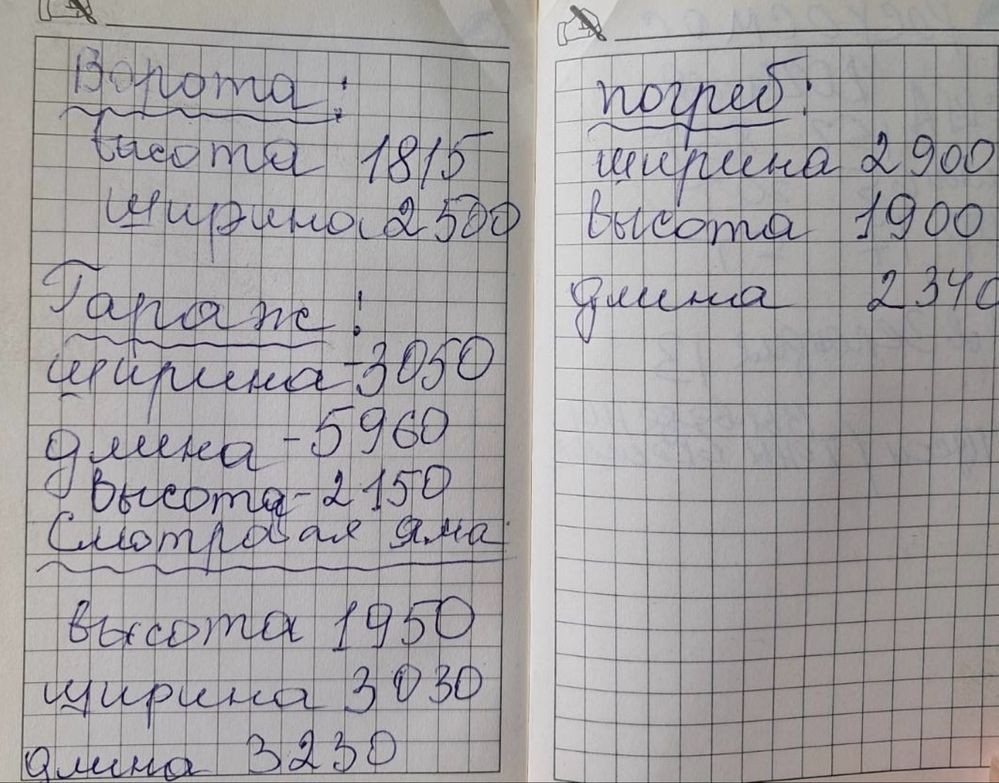 Ворота:
высота 1815
ширина 2500
Гараж:
ширина - 3050
длина - 5960
высота - 2150
Смотровая яма:
высота 1950
ширина 3030
длина 3230
погреб:
ширина 2900
высота 1900
длина 2340